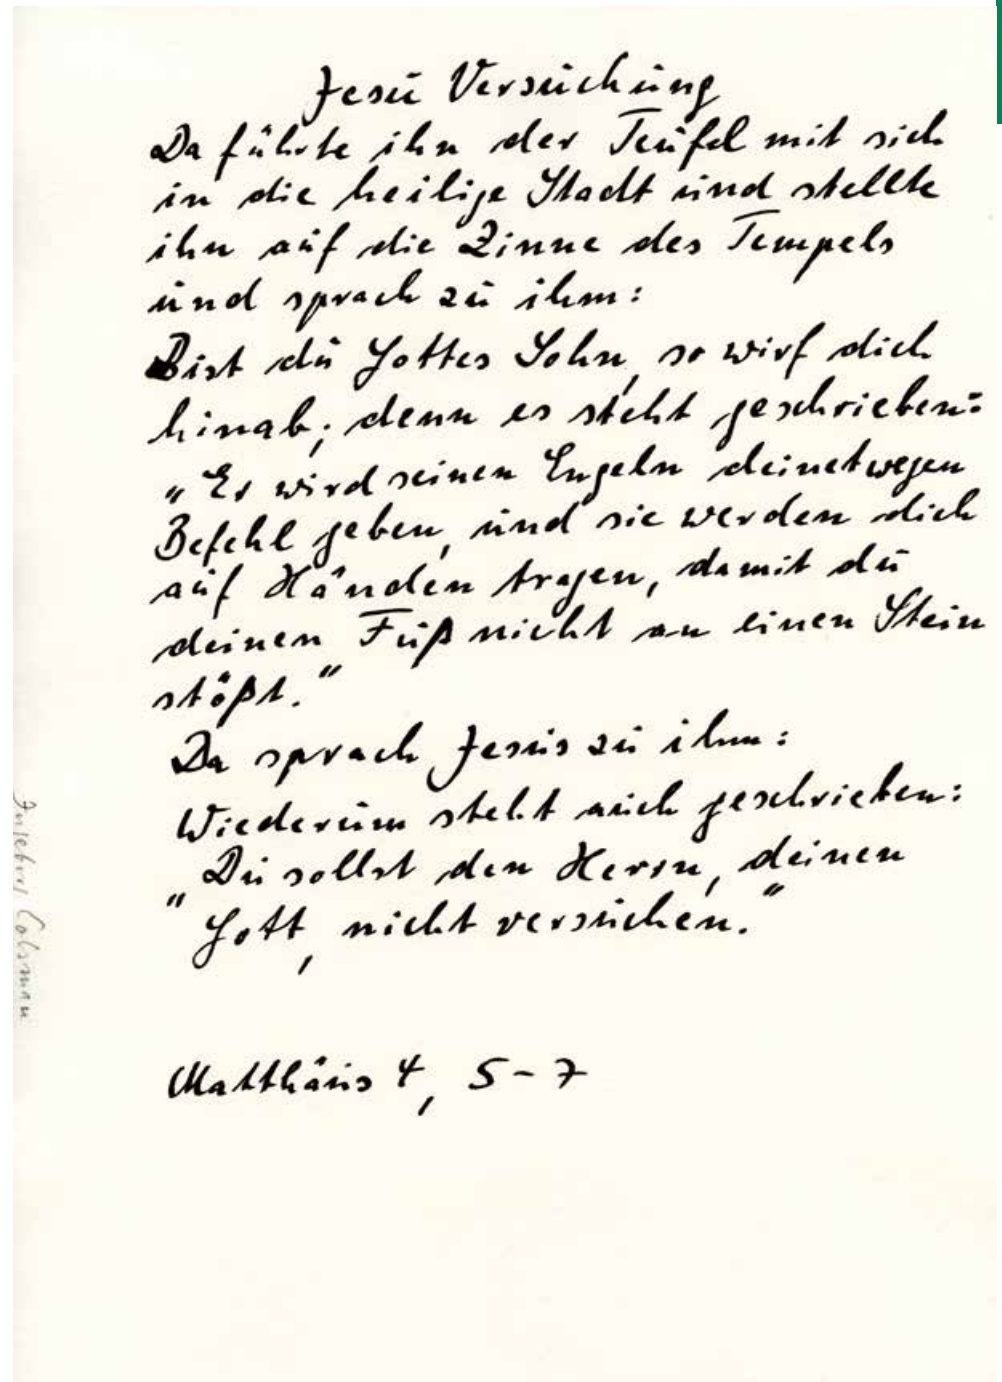 Jesu Versuchung
Da führte ihn der Teufel mit sich
in die heilige Stadt und stellte
ihn auf die Zinne des Tempels
und sprach zu ihm:
Bist du Gottes Sohn, so wirf dich
hinab; denn es steht geschrieben:
"Er wird seinen Engeln deinetwegen
Befehl geben, und sie werden dich
auf Händen tragen, damit du
deinen Fuß nicht an einen Stein
stößt."
Da sprach Jesus zu ihm:
Wiederum steht auch geschrieben:
"Du sollst den Herrn, deinen
Gott, nicht versuchen."
Matthäus 4, 5-7
Ingeborg Colsman